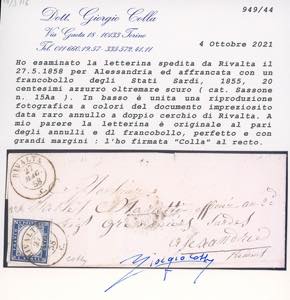 949/44
Dott. Giorgio Colla
Via Gaeta 18 - 10133 Torino
Tel. 011 660.19.57 - 335-572.41.11
4 Ottobre 2021
Ho esaminato la letterina spedita da Rivalta il
27.5.1858 per Alessandria ed affrancata con un
francobollo degli Stati Sardi, 1855, 20
centesimi azzurro oltremare scuro ( cat. Sassone
n. 15Aa ). In basso è unita una riproduzione
fotografica a colori del documento impreziosito
data raro annullo a doppio cerchio di Rivalta. A
mio parere la letterina è originale al pari
degli annulli e dl francobollo, perfetto e con
grandi margini : l'ho firmata "Colla" al recto.
RIVALTA
MAG
58
RIVALTA
58
Sardes
Alexandrie
Piemont
Giorgio Colla